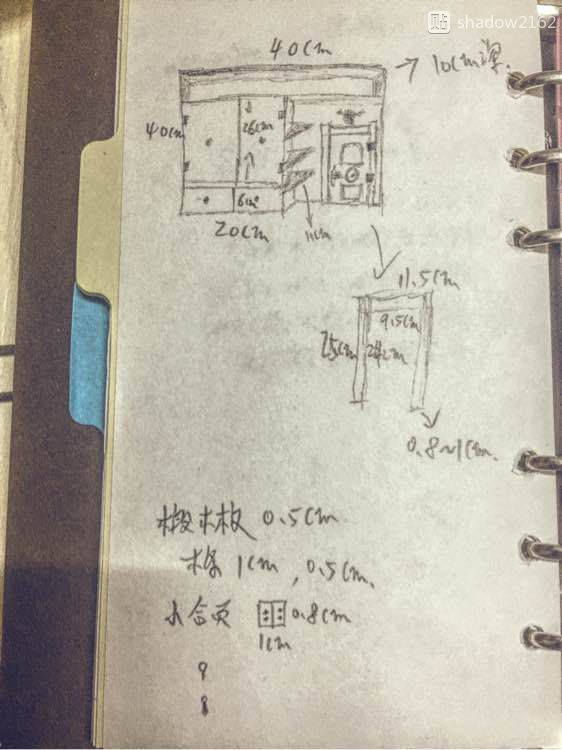 贴 shadow2162
40cm
→ 10cm深.
40cm
26cm
6cm
20cm
11cm
11.5cm
9.5cm
25cm
24cm
0.8~1cm.
椴木板 0.5cm
木条 1cm, 0.5cm.
小合页 0.8cm
1cm